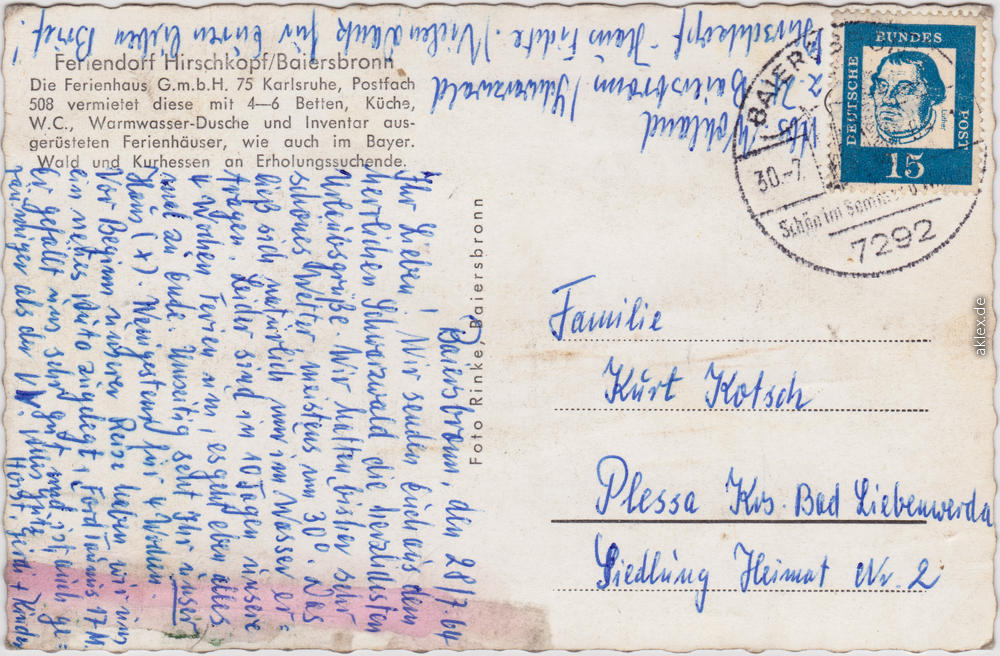 Feriendorf Hirschkopf/Baiersbronn
Die Ferienhaus G.m.b.H. 75 Karlsruhe, Postfach
508 vermietet diese mit 4—6 Betten, Küche,
W.C., Warmwasser-Dusche und Inventar aus-
gerüsteten Ferienhäuser, wie auch im Bayer.
Wald und Kurhessen an Erholungssuchende.
Baiersbronn, den 28/7.64
Ihr Lieben! Wir senden Euch aus dem
herrlichen Schwarzwald die herzlichsten
Urlaubsgrüße. Wir hatten bisher sehr
schönes Wetter meistens um 30°. Das
ließ sich natürlich nur im Wasser er-
tragen. Leider sind in 10 Tagen unsere
4 Wochen Ferien um, es geht eben alles
mal zu Ende. Umseitig seht Ihr unser
Haus (x). Wenigstens für 4 Wochen
Vor Beginn unserer Reise haben wir uns
ein neues Auto zugelegt, Ford Taunus 17 M.
Er gefällt uns sehr gut und ist auch ge-
räumiger als der VW.
Horst, + Kinder
Abs. Wohland
z. Zt. Baiersbronn/Schwarzwald
Hirschkopf "Haus Fichte". Vielen Dank für Euren lieben Brief!
Foto Rinke, Baiersbronn
DEUTSCHE
BUNDES
POST
Luther
15
BAIERS
30.-7.
Schön im Sommer
7292
Familie
Kurt Kotsch
Plessa Krs. Bad Liebenwerda
Siedlung Heimat Nr. 2
aklex.de